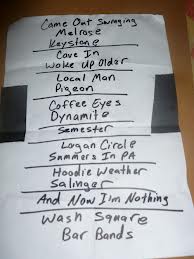 Came Out Swinging
Melrose
Keystone
Cave In
Woke Up Older
Local Man
Pigeon
Coffee Eyes
Dynamite
Semester
Logan Circle
Summers In PA
Hoodie Weather
Salinger
And Now I'm Nothing
Wash Square
Bar Bands